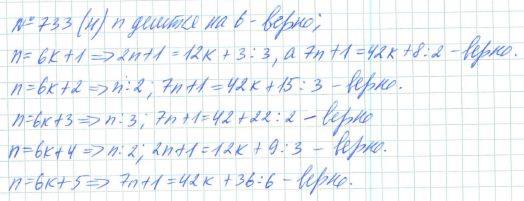 № 733 (н) n делтке на 6 - верно;
n = 6k+1 ⇒ 2n+1 = 12k + 3 ⋮ 3, а 7n+1 = 42k+8 ⋮ 2 - верно.
n = 6k+2 ⇒ n ⋮ 2; 7n+1 = 42k+15 ⋮ 3 - верно.
n = 6k+3 ⇒ n ⋮ 3; 7n+1 = 42+22 ⋮ 2 - верно
n = 6k+4 ⇒ n ⋮ 2; 2n+1 = 12k + 9 ⋮ 3 - верно.
n = 6k+5 ⇒ 7n+1 = 42k + 36 ⋮ 6 - верно.